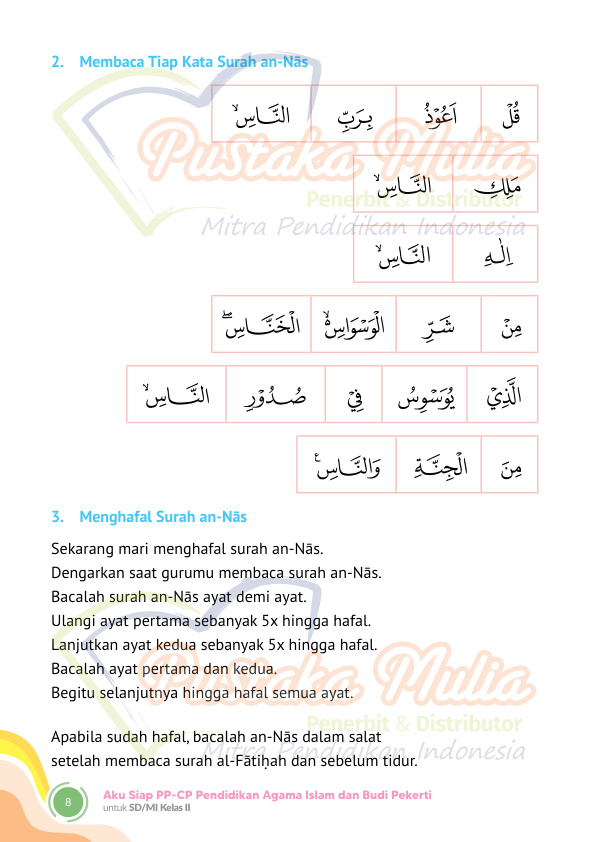 2. Membaca Tiap Kata Surah an-Nās
قُلْ اَعُوْذُ بِرَبِّ النَّاسِۙ
مَلِكِ النَّاسِۙ
اِلٰهِ النَّاسِۙ
مِنْ شَرِّ الْوَسْوَاسِ ەۙ الْخَنَّاسِۖ
الَّذِيْ يُوَسْوِسُ فِيْ صُدُوْرِ النَّاسِۙ
مِنَ الْجِنَّةِ وَالنَّاسِ ࣖ
3. Menghafal Surah an-Nās
Sekarang mari menghafal surah an-Nās.
Dengarkan saat gurumu membaca surah an-Nās.
Bacalah surah an-Nās ayat demi ayat.
Ulangi ayat pertama sebanyak 5x hingga hafal.
Lanjutkan ayat kedua sebanyak 5x hingga hafal.
Bacalah ayat pertama dan kedua.
Begitu selanjutnya hingga hafal semua ayat.
Apabila sudah hafal, bacalah an-Nās dalam salat
setelah membaca surah al-Fātiḥah dan sebelum tidur.
8
Aku Siap PP-CP Pendidikan Agama Islam dan Budi Pekerti
untuk SD/MI Kelas II
Pustaka Mulia
Penerbit & Distributor
Mitra Pendidikan Indonesia
Pustaka Mulia
Penerbit & Distributor
Mitra Pendidikan Indonesia